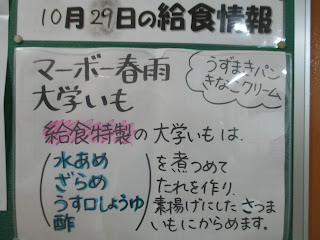 10月29日の給食情報
マーボー春雨
大学いも
うずまきパン
きなこクリーム
給食特製の大学いもは、
(水あめ
ざらめ
うす口しょうゆ
酢)
を煮つめて
たれを作り、
素揚げにしたさつま
いもにからめます。